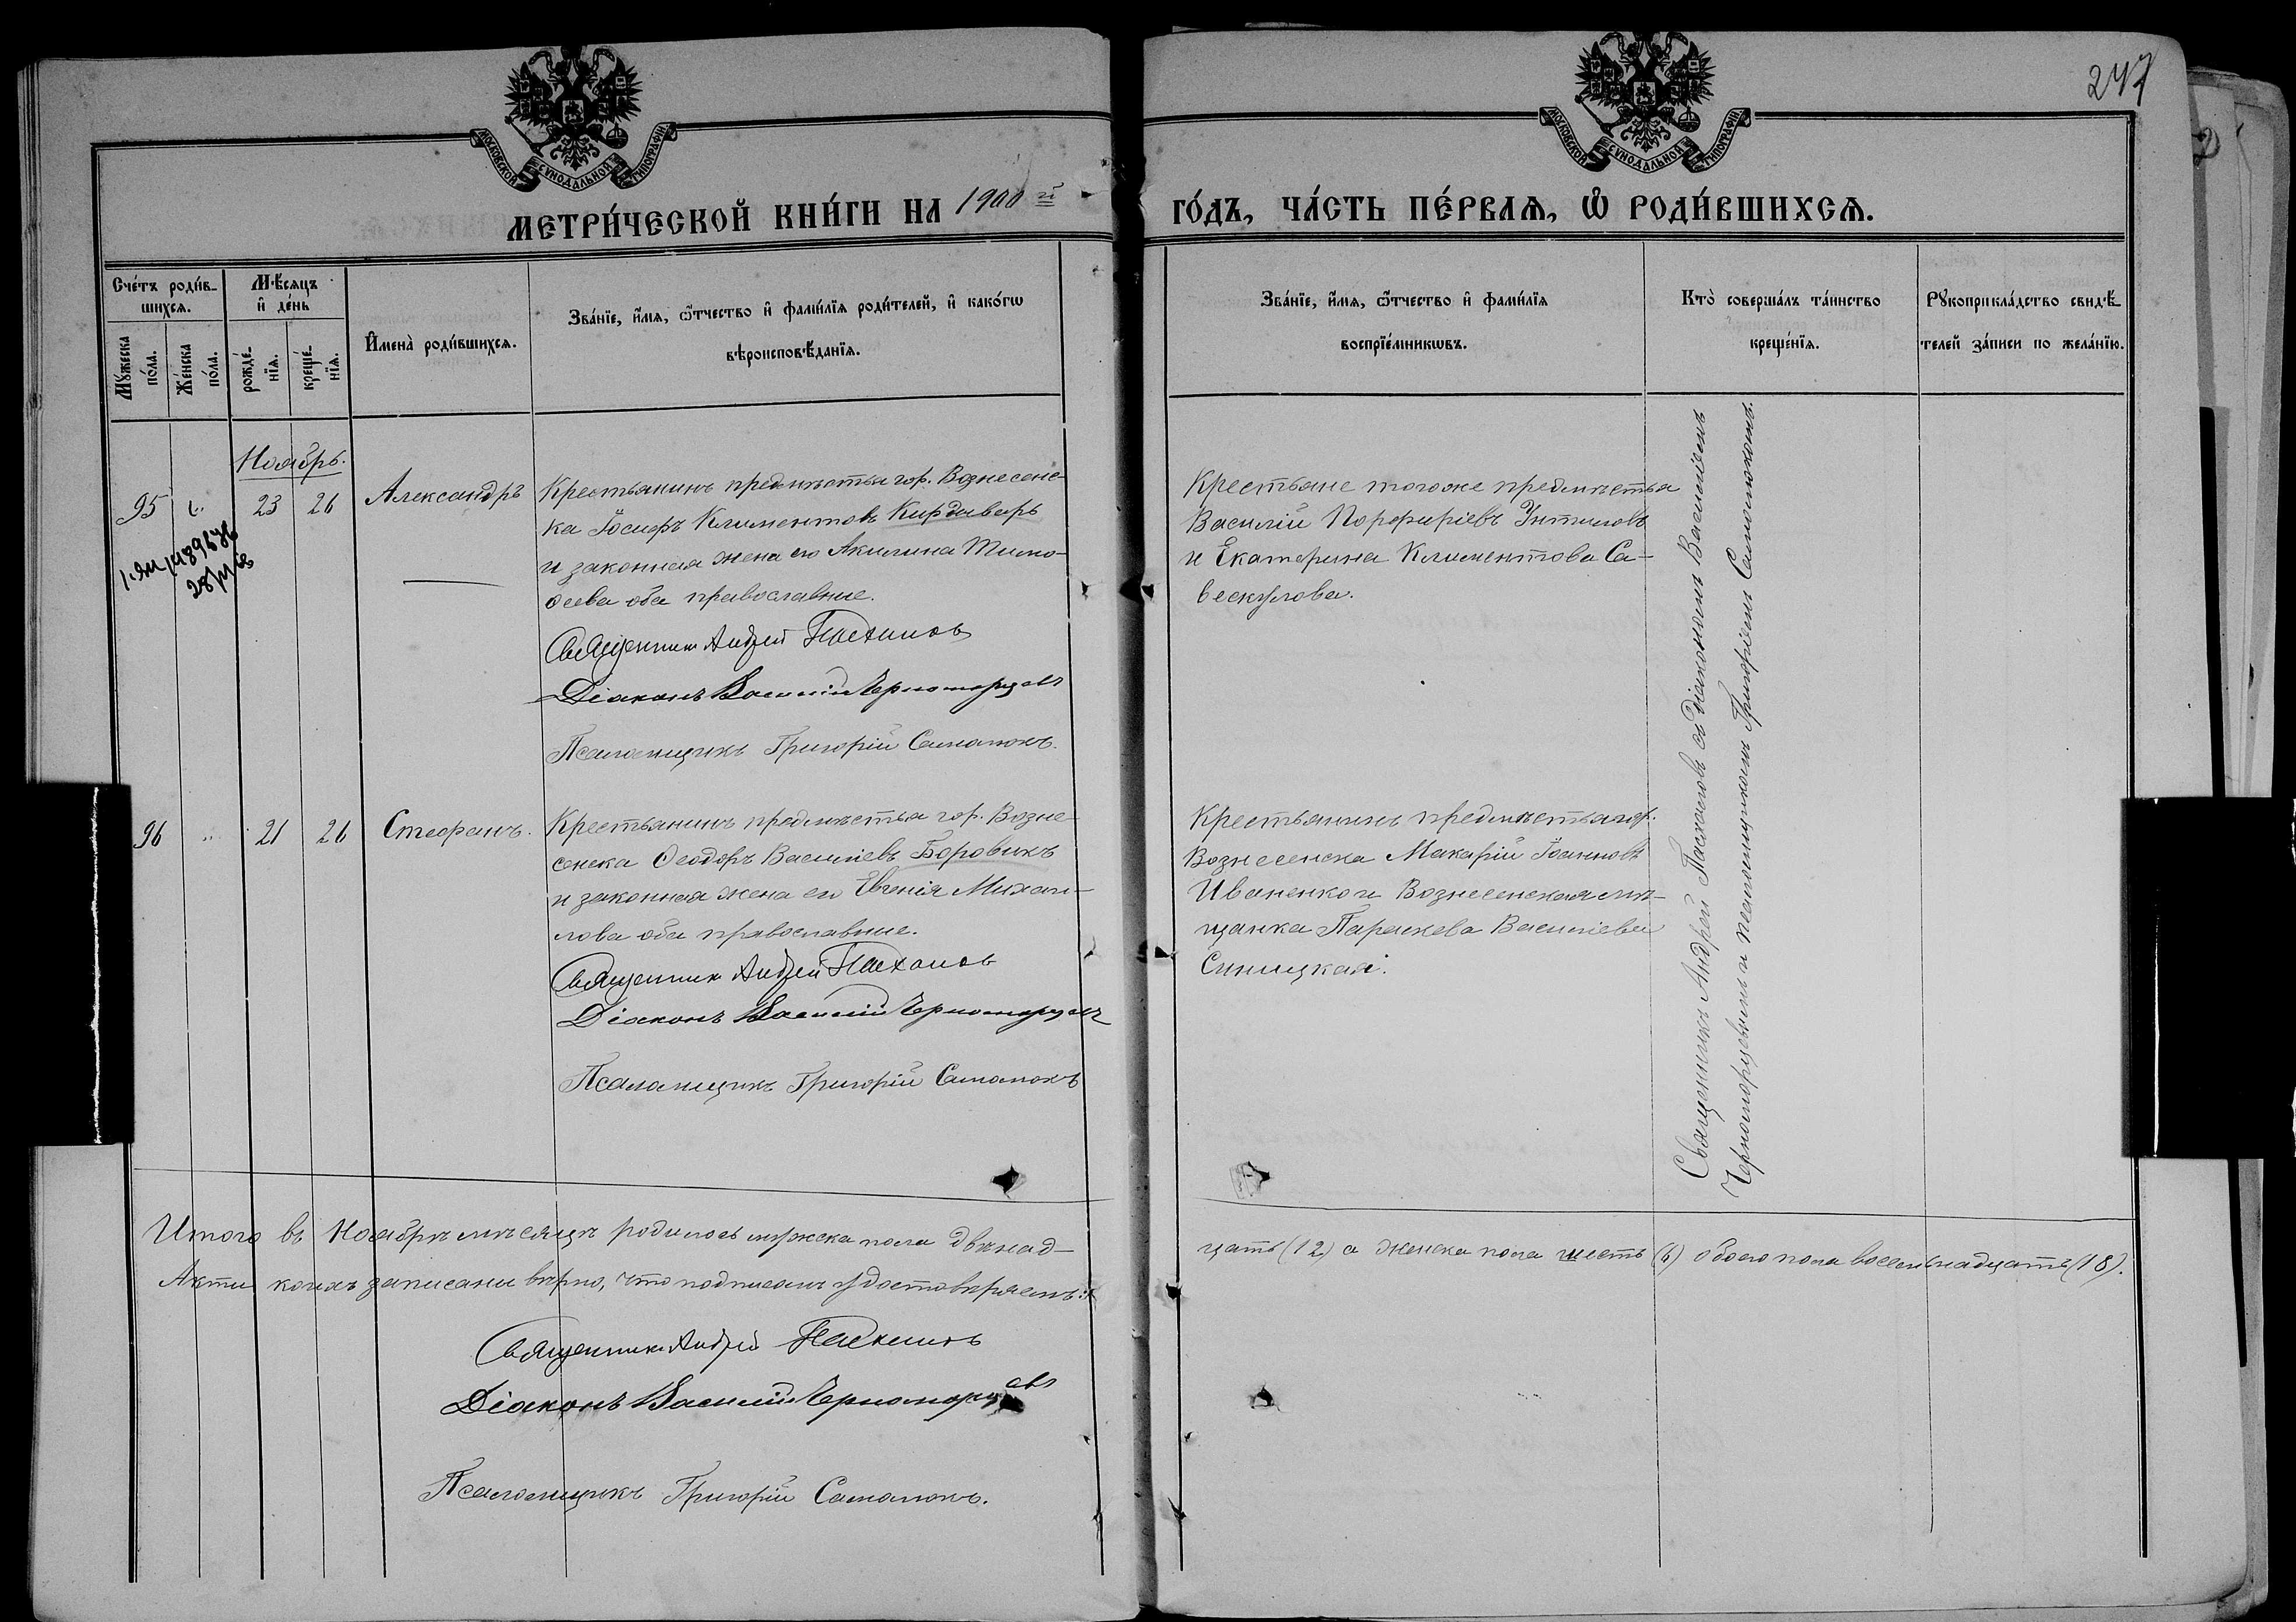 247
МОСКОВСКОЙ СѴНОДАЛЬНОЙ ТИПОГРАФІИ
МОСКОВСКОЙ СѴНОДАЛЬНОЙ ТИПОГРАФІИ
МЕТРИ́ЧЕСКОЙ КНИ́ГИ НА 1900й ГО́ДЪ, ЧА́СТЬ ПЕ́РВАѦ, Ѡ҆ РОДИ́ВШИХСѦ.
Сче́тъ роди́в-
шихсѧ.
Мꙋ́жеска по́ла.
Же́нска по́ла.
Мѣ́сѧцъ
и҆ де́нь
рожде́-
нїѧ.
креще́-
нїѧ.
И҆мена̀ роди́вшихсѧ.
Зва́нїе, и҆́мѧ, ѻ҆́тчество и҆ фами́лїѧ роди́телей, и҆ како́гѡ
вѣроисповѣ́данїѧ.
Зва́нїе, и҆́мѧ, ѻ҆́тчество и҆ фами́лїѧ
воспрїе́мникѡвъ.
Кто̀ соверша́лъ та́инство
креще́нїѧ.
Рꙋкоприкла́дство свидѣ́-
телей за́писи по жела́нїю.
Ноябрь.
95 23 26 Александръ
Крестьянинъ предмѣстья гор. Вознесенс-
ка Іосифъ Климентовъ Кирдиверь
и законная жена его Акилина Тимо-
ѳеева оба православные.
Священникъ Андрей Пасхаловъ
Діаконъ Василій Черноморцевъ
Псаломщикъ Григорій Самолюкъ.
Крестьяне того же предмѣстья
Василій Порфиріевъ
и Екатерина Климентова Са-
вескулова.
Священникъ Андрей Пасхаловъ съ діакономъ Василіемъ
Черноморцевымъ и псаломщикомъ Григоріемъ Самолюкомъ.
96 21 26 Стефанъ.
Крестьянинъ предмѣстья гор. Возне-
сенска Ѳеодоръ Василіевъ Боровикъ
и законная жена его Евгенія Михаи-
лова оба православные.
Священникъ Андрей Пасхаловъ
Діаконъ Василій Черноморцевъ
Псаломщикъ Григорій Самолюкъ
Крестьянинъ предмѣстья гор.
Вознесенска Макарій Іоанновъ
Иваненко и Вознесенская мѣ-
щанка Параскева Василіева
Синицкая.
Итого въ Ноябрѣ мѣсяцѣ родилось мужска пола двѣнад-
цать (12) а женска пола шесть (6) обоего пола восемьнадцать (18).
Акты коихъ записаны вѣрно, что подписомъ удостовѣряемъ:
Священникъ Андрей Пасхаловъ
Діаконъ Василій Черноморцевъ
Псаломщикъ Григорій Самолюкъ.